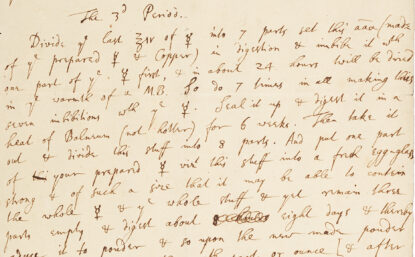 The 3d Period.
Divide ye last of ☿ into 7 parts set this āāā (made
of ye prepared ☿ & Copper) in digestion & imbibe it wth
one part of ye ☿ first, & in about 24 hours will be dried
in ye warmth of a MB. So do 7 times in all making thus
seven imbibitions wth ye ☿. Seal it up & digest it in a
heat of Balneum (not hotter) for 6 weeks. Then take it
out & divide this stuff into 8 parts. And put one part
of your prepared ☿ viz this stuff into a fresh Egg-glass
strong & of such a size that it may be able to contein
the whole ☿ & ye whole stuff & yet remain three
parts empty & digest about eight days & thereby
it to pouder & so upon the new made pouder
part or ounce [& after